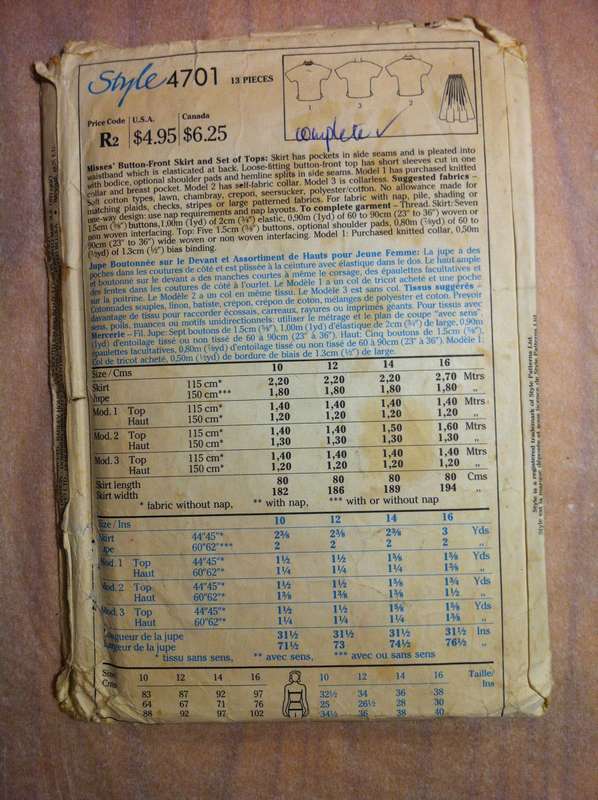 Style 4701 13 PIECES
1 3 2
Price Code U.S.A. Canada
R2 $4.95 $6.25
complete ✓
Misses' Button-Front Skirt and Set of Tops: Skirt has pockets in side seams and is pleated into
waistband which is elasticated at back. Loose-fitting button-front top has short sleeves cut in one
with bodice, optional shoulder pads and hemline splits in side seams. Model 1 has purchased knitted
collar and breast pocket. Model 2 has self-fabric collar. Model 3 is collarless. Suggested fabrics –
Soft cotton types, lawn, chambray, crepon, seersucker, polyester/cotton. No allowance made for
matching plaids, checks, stripes or large patterned fabrics. For fabric with nap, pile, shading or
one-way design: use nap requirements and nap layouts. To complete garment – Thread. Skirt: Seven
1.5cm (⅝") buttons, 1,00m (1yd) of 2cm (¾") elastic, 0,90m (1yd) of 60 to 90cm (23" to 36") woven or
non woven interfacing. Top: Five 1.5cm (⅝") buttons, optional shoulder pads, 0,80m (⅞yd) of 60 to
90cm (23" to 36") wide woven or non woven interfacing. Model 1: Purchased knitted collar, 0,50m
(½yd) of 1.3cm (½") bias binding.
Jupe Boutonnée sur le Devant et Assortiment de Hauts pour Jeune Femme: La jupe à des
poches dans les coutures de côté et est plissée à la ceinture avec élastique dans le dos. Le haut ample
et boutonne sur le devant a des manches courtes à même le corsage, des épaulettes facultatives et
des fentes dans les coutures de côté à l'ourlet. Le Modèle 1 a un col de tricot acheté et une poche
sur la poitrine. Le Modèle 2 a un col en même tissu. Le Modèle 3 est sans col. Tissus suggérés –
Cotonnades souples, linon, batiste, crépon, crépon de coton, mélanges de polyester et coton. Prevoir
davantage de tissu pour raccorder écossais, carreaux, rayures ou imprimés géants. Pour tissus avec
sens, poils, nuances ou motifs unidirectionnels: utiliser le métrage et le plan de coupe "avec sens".
Mercerie – Fil. Jupe: Sept boutons de 1.5cm (⅝"), 1,00m (1yd) d'élastique de 2cm (¾") de large, 0,90m
(1yd) d'entoilage tissé ou non tissé de 60 à 90cm (23" à 36"). Haut: Cinq boutons de 1.5cm (⅝"),
épaulettes facultatives, 0,80m (⅞yd) d'entoilage tissé ou non tissé de 60 à 90cm (23" à 36"). Modèle 1:
Col de tricot acheté, 0,50m (½yd) de bordure de biais de 1.3cm (½") de large.
Size/Cms 10 12 14 16
Skirt 115 cm* 2,20 2,20 2,20 2,70 Mtrs
Jupe 150 cm*** 1,80 1,80 1,80 1,80 „
Mod. 1 Top 115 cm* 1,40 1,40 1,40 1,40 Mtrs
Haut 150 cm* 1,20 1,20 1,20 1,20 „
Mod. 2 Top 115 cm* 1,40 1,40 1,50 1,60 Mtrs
Haut 150 cm* 1,30 1,30 1,30 1,30 „
Mod. 3 Top 115 cm* 1,40 1,40 1,40 1,40 Mtrs
Haut 150 cm* 1,20 1,20 1,20 1,20 „
Skirt length 80 80 80 80 Cms
Skirt width 182 186 189 194 „
* fabric without nap, ** with nap, *** with or without nap
Size/Ins 10 12 14 16
Skirt 44"45"* 2⅜ 2⅜ 2⅜ 3 Yds
Jupe 60"62"*** 2 2 2 2 „
Mod. 1 Top 44"45"* 1½ 1½ 1⅝ 1⅝ Yds
Haut 60"62"* 1¼ 1¼ 1¼ 1⅜ „
Mod. 2 Top 44"45"* 1½ 1½ 1⅝ 1¾ Yds
Haut 60"62"* 1⅜ 1⅜ 1⅜ 1½ „
Mod. 3 Top 44"45"* 1½ 1½ 1⅝ 1⅝ Yds
Haut 60"62"* 1¼ 1¼ 1¼ 1⅜ „
Longueur de la jupe 31½ 31½ 31½ 31½ Ins
Largeur de la jupe 71½ 73 74½ 76½ „
* tissu sans sens, ** avec sens, *** avec ou sans sens
Size 10 12 14 16 10 12 14 16 Taille/
Cms Ins
83 87 92 97 32½ 34 36 38
64 67 71 76 25 26½ 28 30
88 92 97 102 34½ 36 38 40
Style is a registered trademark of Style Patterns Ltd.
Style est la marque déposée et sous licence de Style Patterns Ltd.